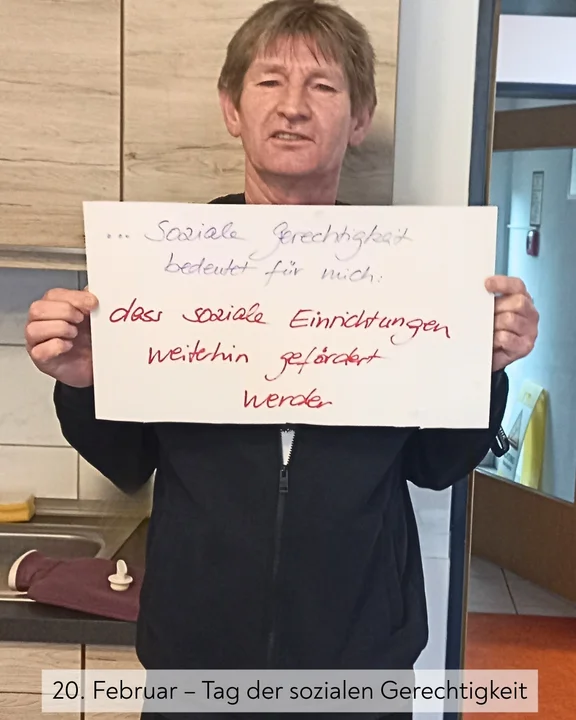 ... Soziale Gerechtigkeit
bedeutet für mich:
dass soziale Einrichtungen
weiterhin gefördert
werden
20. Februar – Tag der sozialen Gerechtigkeit